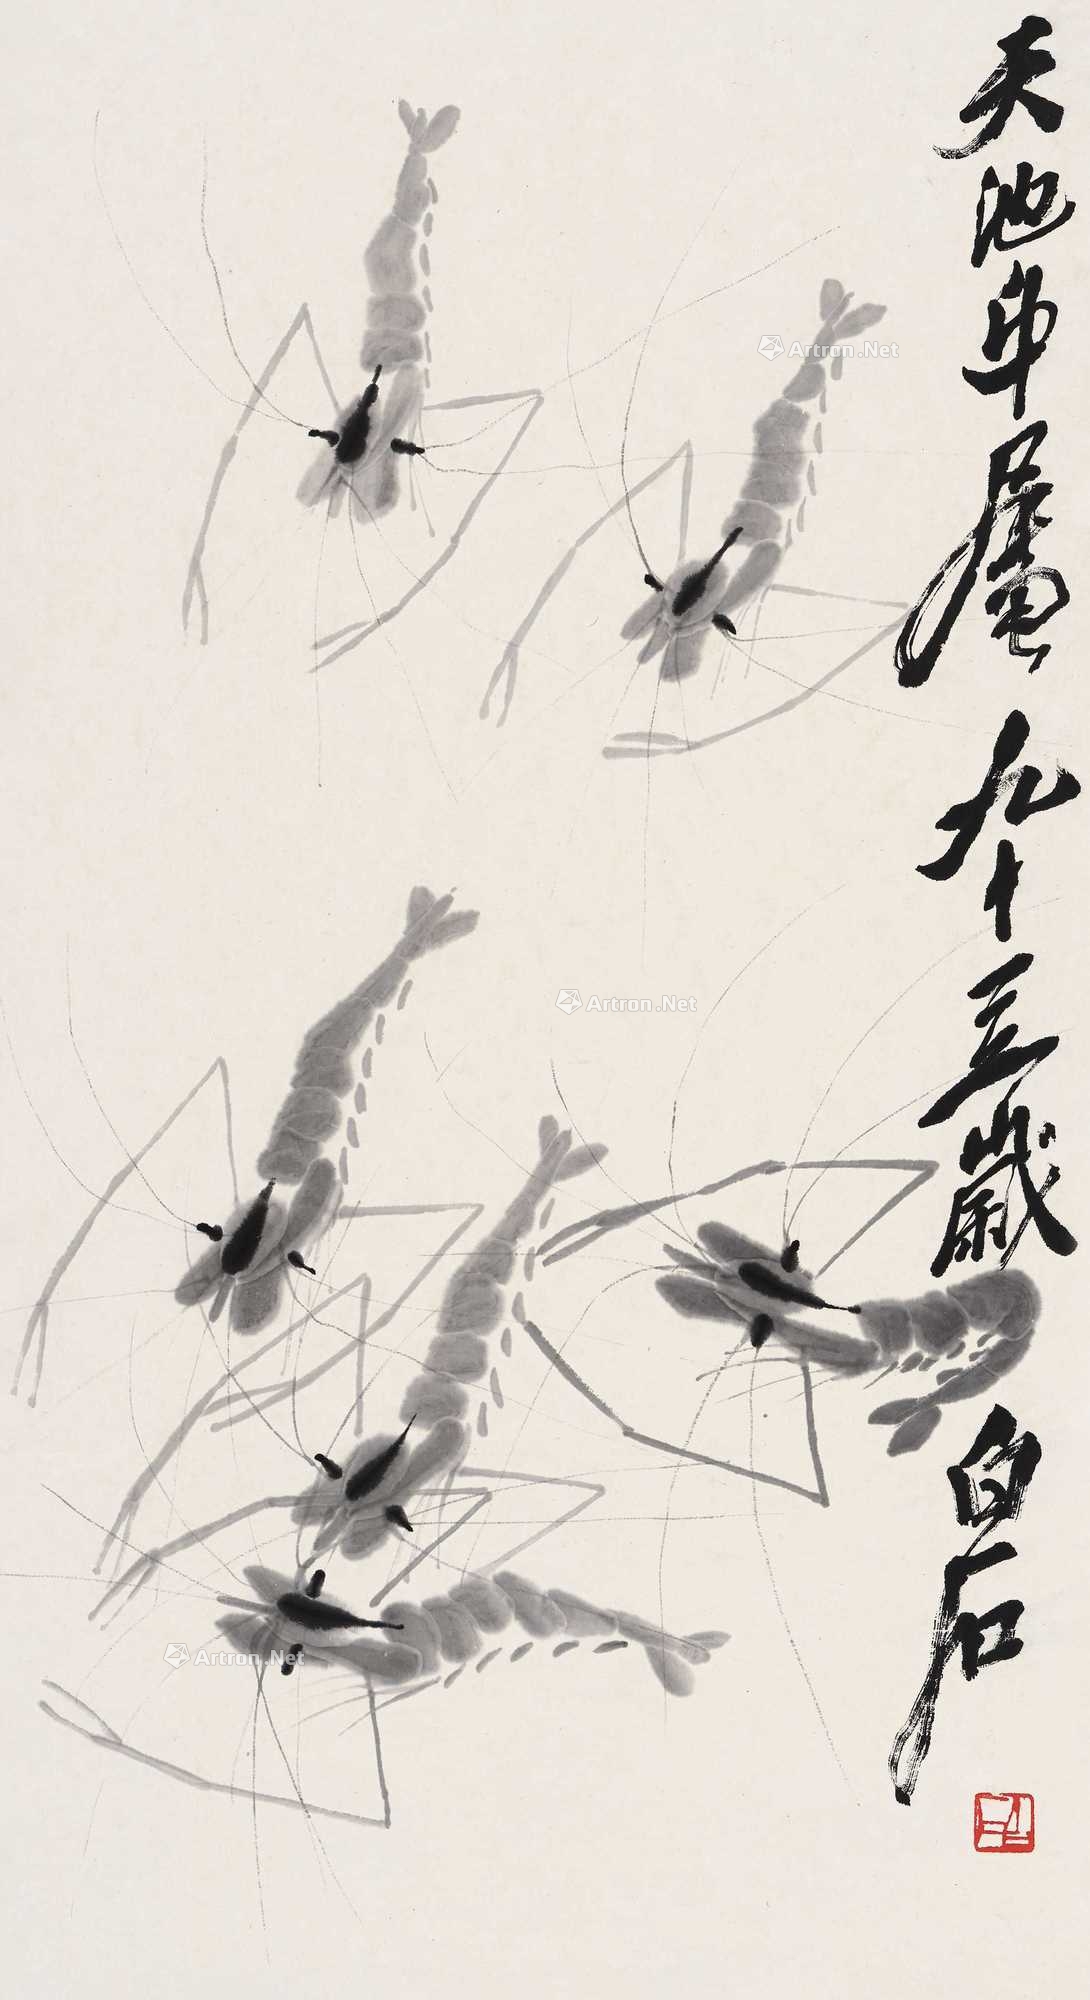 天池屬 九十三歲 白石
Artron.Net
Artron.Net
Artron.Net